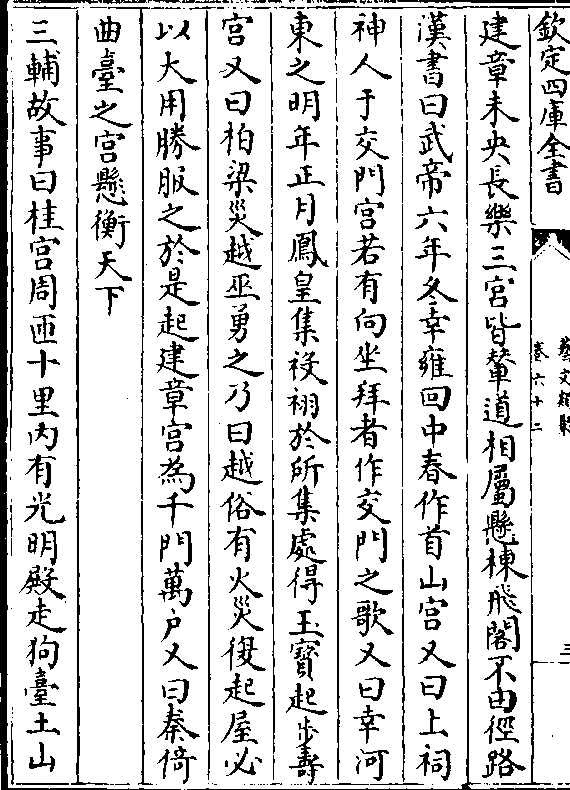 欽定四庫全書
藝文類聚
卷六十二
三
建章未央長樂三宮皆輦道相屬懸棟飛閣不由徑路
漢書曰武帝六年冬幸雍回中春作首山宮又曰上祠
神人于交門宮若有向坐拜者作交門之歌又曰幸河
東之明年正月鳳皇集祋祤於所集處得玉寶起步壽
宮又曰柏梁災越巫勇之乃曰越俗有火災復起屋必
以大用勝服之於是起建章宮為千門萬户又曰秦倚
曲臺之宮懸衡天下
三輔故事曰桂宮周匝十里内有光明殿走狗臺土山